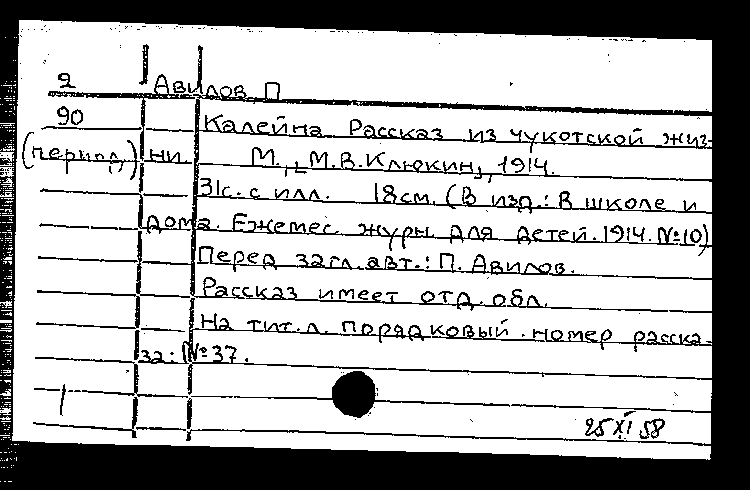 2 Авилов, П
90 Калейна Рассказ из чукотской жиз-
(период.) ни. М., [М.В.Клюкин], 1914.
31с. с илл. 18см. (В изд.: В школе и
дома. Ежемес. журн. для детей. 1914. №10)
Перед загл. авт.: П. Авилов.
Рассказ имеет отд. обл.
На тит. л. порядковый номер расска-
за: №37.
1
25 XI 58